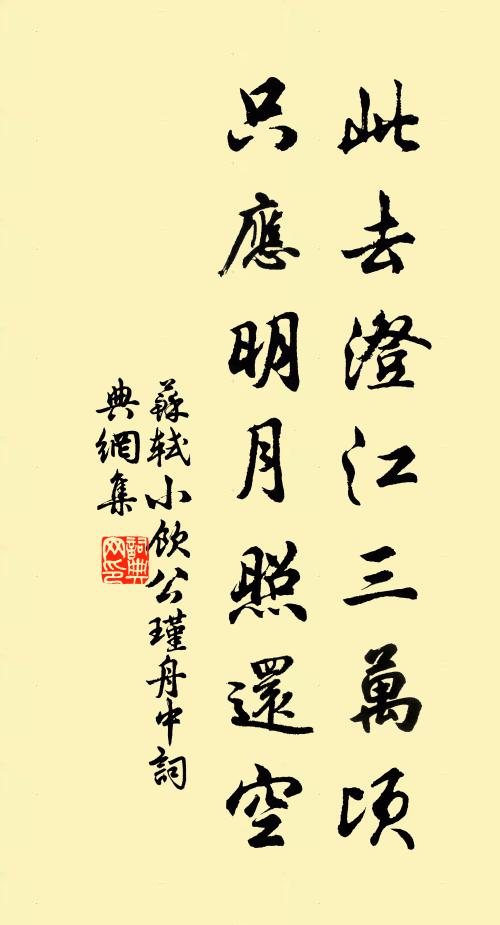 此去澄江三萬頃
只應明月照還空
蘇軾小飲公瑾舟中詞
典網集
詞典网印